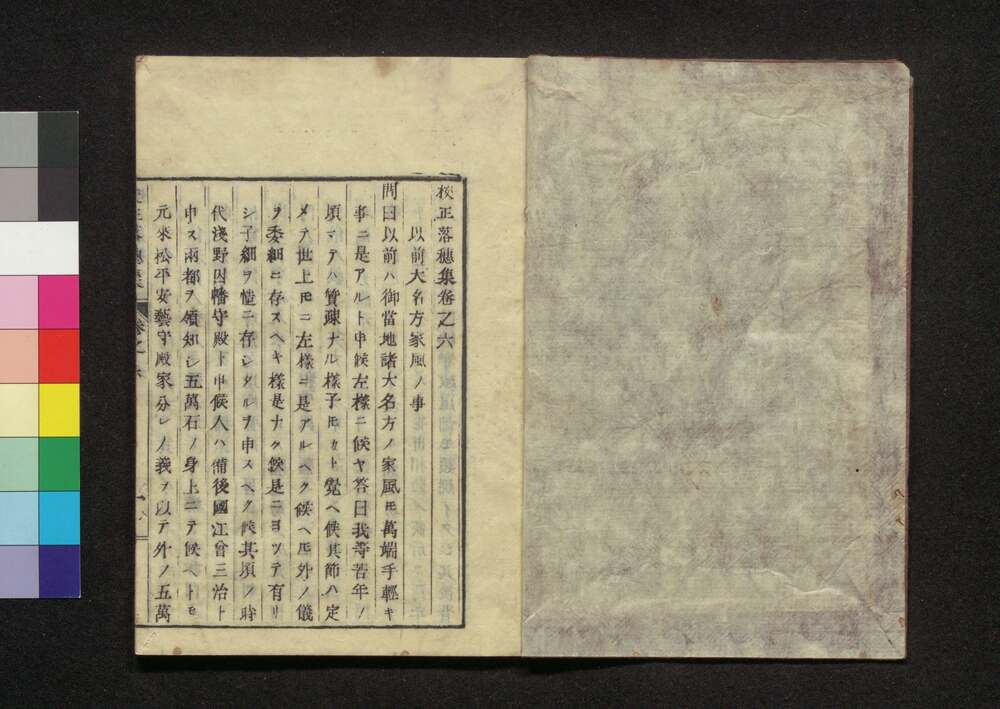 校正落穂集卷之六
以前大名方家風ノ事
問曰以前ハ御當地諸大名方ノ家風モ萬端手輕キ
事ニ是アルト申候左樣ニ候ヤ答曰我等若年ノ
頃マテハ質疎ナル樣子モカト覺ヘ候其節ハ定
メテ世上モニ左樣ニ是アルヘク候ヘ𪜈外ノ儀
ヲ委細ニ存スヘキ樣是ナク候是ニヨツテ有リ
シ子細ヲ慥ニ存シタルヲ申スヘク候其頃ノ時
代淺野因幡守殿ト申候人ハ備後國江曾三治ト
申ス兩都ヲ領知シ五萬石ノ身上ニテ候ヘトモ
元來松平安藝守殿家分レノ義ヲ以テ外ノ五萬
卷之六